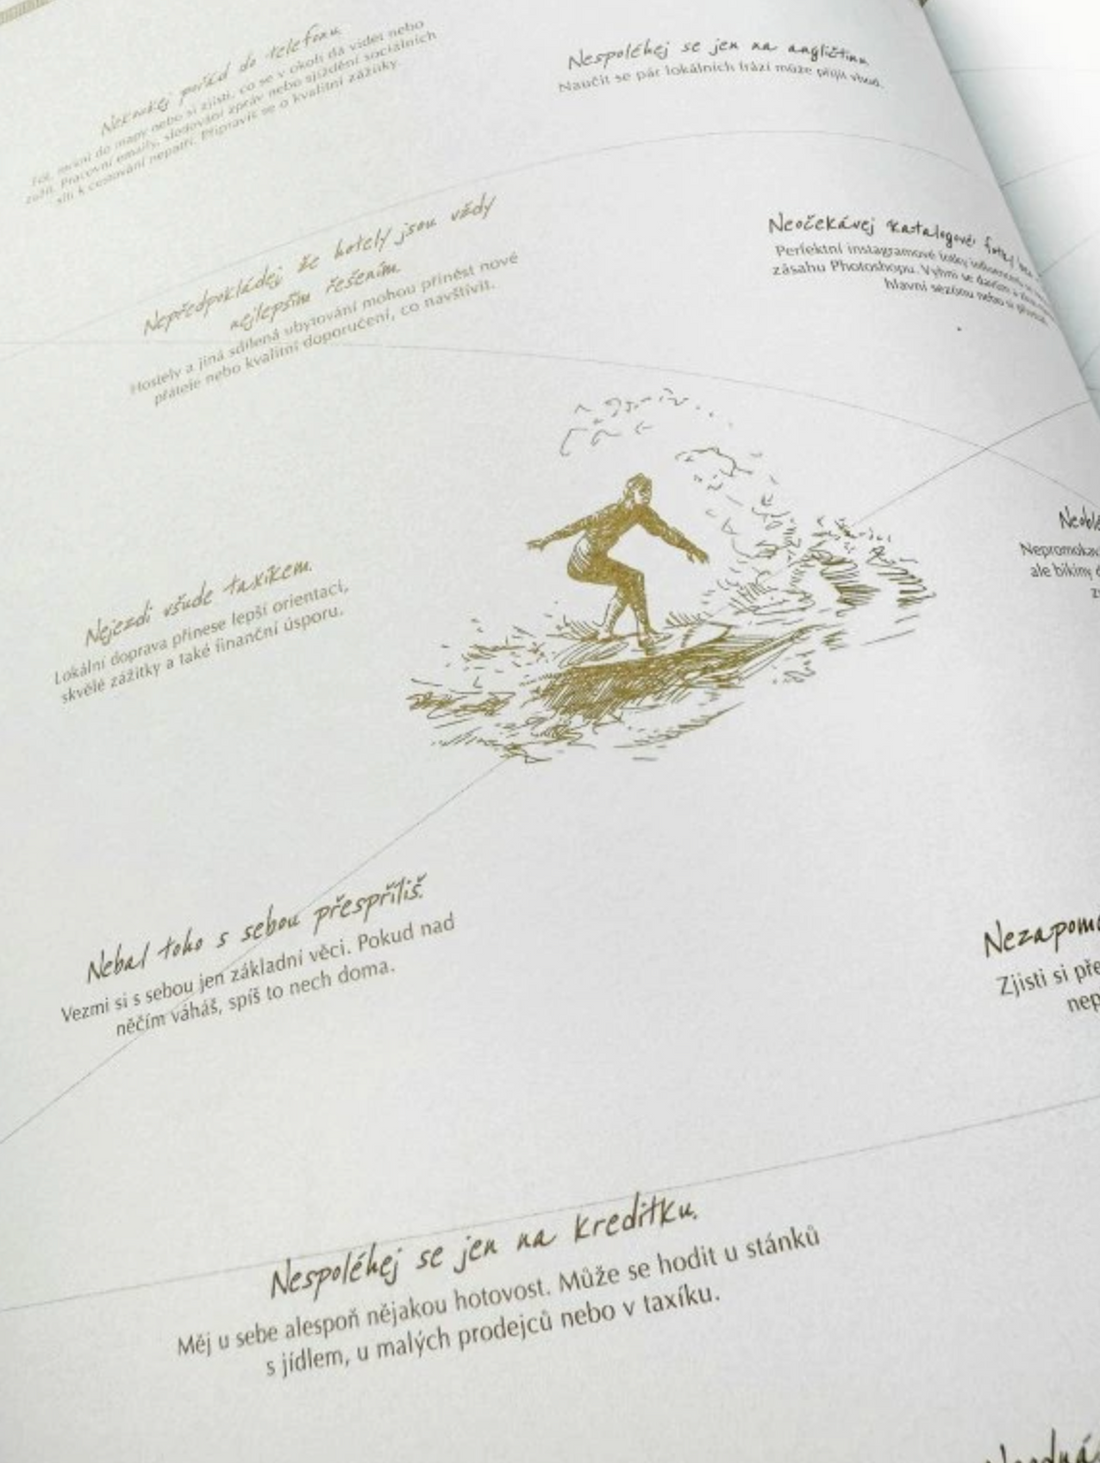 Nekoukej pořád do telefonu.
Fot, mrkni do mapy nebo si zjisti, co se v okolí dá vidět nebo
zažít. Pracovní emaily, sledování zpráv nebo sjíždění sociálních
sítí k cestování nepatří. Připravíš se o kvalitní zážitky.
Nespoléhej se jen na angličtinu.
Naučit se pár lokálních frází může přijít vhod.
Nepředpokládej že hotely jsou vždy
nejlepším řešením.
Hostely a jiná sdílená ubytování mohou přinést nové
přátele nebo kvalitní doporučení, co navštívit.
Neočekávej katalogové fotky bez
Perfektní instagramové fotky
zásahu Photoshopu. Vyhni se davům a
hlavní sezónu nebo si
Neoble
Nepromokav
ale bikiny
Nejezdi všude taxíkem.
Lokální doprava přinese lepší orientaci,
skvělé zážitky a také finanční úsporu.
Nebal toho s sebou přespříliš.
Vezmi si s sebou jen základní věci. Pokud nad
něčím váháš, spíš to nech doma.
Nezapome
Zjisti si pře
nep
Nespoléhej se jen na kreditku.
Měj u sebe alespoň nějakou hotovost. Může se hodit u stánků
s jídlem, u malých prodejců nebo v taxíku.